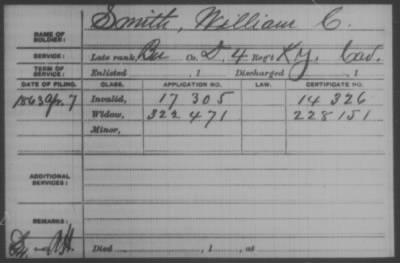 NAME OF SOLDIER: Smith, William C.
SERVICE: Late rank, Co. D, 4 Reg't Ky. Cav.
TERM OF SERVICE: Enlisted , 1 Discharged , 1
DATE OF FILING. CLASS. APPLICATION NO. LAW. CERTIFICATE NO.
1863 Apr. 7 Invalid, 17 305 14 326
Widow, 322 471 228 151
Minor,
ADDITIONAL SERVICES:
REMARKS:
Died , 1 , at